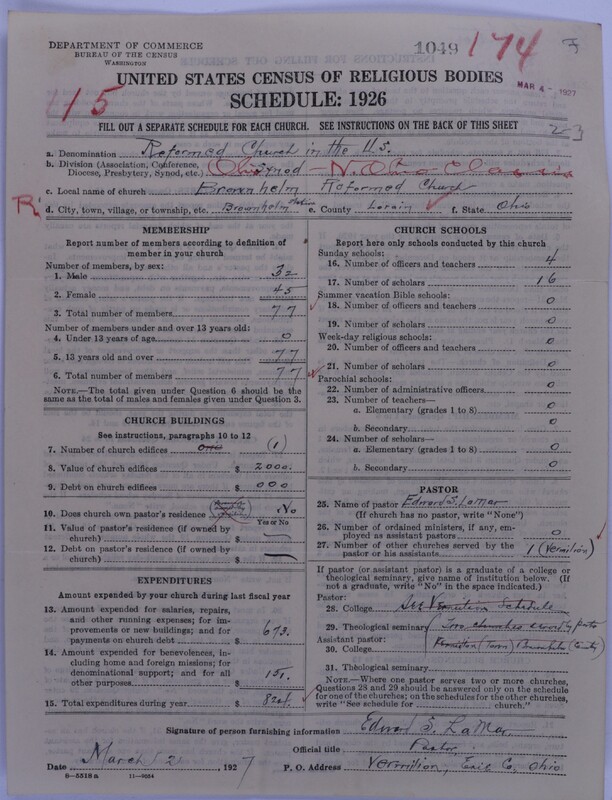 DEPARTMENT OF COMMERCE
BUREAU OF THE CENSUS
WASHINGTON
1049 174
MAR 4 - 1927
15
UNITED STATES CENSUS OF RELIGIOUS BODIES
SCHEDULE: 1926
FILL OUT A SEPARATE SCHEDULE FOR EACH CHURCH. SEE INSTRUCTIONS ON THE BACK OF THIS SHEET
23
a. Denomination Reformed Church in the U.S.
b. Division (Association, Conference, Diocese, Presbytery, Synod, etc.) Ohio Synod - N. Ohio Classis
c. Local name of church Brownhelm Reformed Church
R
d. City, town, village, or township, etc. Brownhelm Station e. County Lorain f. State Ohio
MEMBERSHIP
Report number of members according to definition of member in your church
Number of members, by sex:
1. Male 32
2. Female 45
3. Total number of members 77
Number of members under and over 13 years old:
4. Under 13 years of age 0
5. 13 years old and over 77
6. Total number of members 77
NOTE.—The total given under Question 6 should be the same as the total of males and females given under Question 3.
CHURCH BUILDINGS
See instructions, paragraphs 10 to 12
7. Number of church edifices One (1)
8. Value of church edifices $ 2000.
9. Debt on church edifices $ 000
10. Does church own pastor's residence No
Yes or No
11. Value of pastor's residence (if owned by church) $
12. Debt on pastor's residence (if owned by church) $
EXPENDITURES
Amount expended by your church during last fiscal year
13. Amount expended for salaries, repairs, and other running expenses; for improvements or new buildings; and for payments on church debt $ 673.
14. Amount expended for benevolences, including home and foreign missions; for denominational support; and for all other purposes $ 151.
15. Total expenditures during year $ 824.
CHURCH SCHOOLS
Report here only schools conducted by this church
Sunday schools:
16. Number of officers and teachers 4
17. Number of scholars 16
Summer vacation Bible schools:
18. Number of officers and teachers 0
19. Number of scholars 0
Week-day religious schools:
20. Number of officers and teachers 0
21. Number of scholars 0
Parochial schools:
22. Number of administrative officers 0
23. Number of teachers—
a. Elementary (grades 1 to 8) 0
b. Secondary 0
24. Number of scholars—
a. Elementary (grades 1 to 8) 0
b. Secondary 0
PASTOR
25. Name of pastor Edward S. LaMar
(If church has no pastor, write "None")
26. Number of ordained ministers, if any, employed as assistant pastors 0
27. Number of other churches served by the pastor or his assistants 1 (Vermilion)
If pastor (or assistant pastor) is a graduate of a college or theological seminary, give name of institution below. (If not a graduate, write "No" in the space indicated.)
Pastor:
28. College See Vermilion Schedule
29. Theological seminary Two churches served by pastor
Assistant pastor:
30. College Vermilion (Town) Brownhelm (County)
31. Theological seminary
NOTE.—Where one pastor serves two or more churches, Questions 28 and 29 should be answered only on the schedule for one of the churches; on the schedules for the other churches, write "See schedule for church."
Signature of person furnishing information Edward S. LaMar
Official title Pastor
Date March 2 1927 P. O. Address Vermilion, Erie Co. Ohio
6-5318a 11-9064